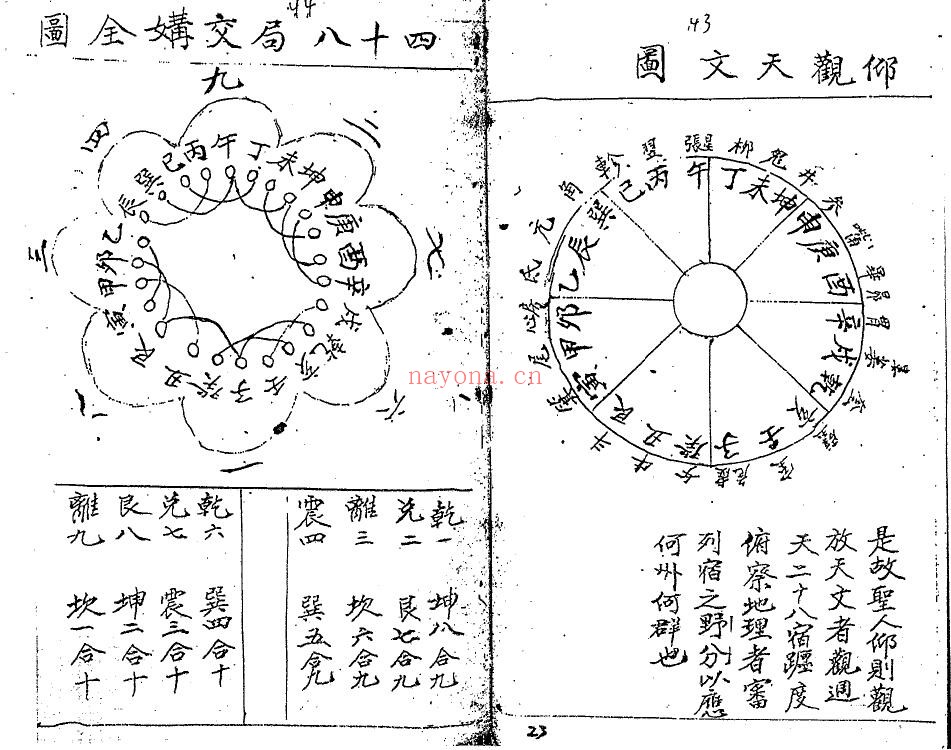 43
仰觀天文圖
張星 柳 鬼 井 参 觜 畢 昴 胃 婁 奎 室 危虛 女 牛 斗 箕 尾 心房 氐 亢 角 軫 翌
午 丁 未 坤 申 庚 酉 辛 戌 乾 亥 壬 子 癸 丑 艮 寅 甲 卯 乙 辰 巽 巳 丙
是故聖人仰則觀
放天文者觀週
天二十八宿躔度
俯察地理者審
列宿之野分以應
何州何群也
23
44
四十八局交媾全圖
九 二 七 六 一 八 三 四
午 丁 未 坤 申 庚 酉 辛 戌 乾 亥 壬 子 癸 丑 艮 寅 甲 卯 乙 辰 巽 巳 丙
乾一 坤八合九
兑二 艮七合九
離三 坎六合九
震四 巽五合九
乾六 巽四合十
兑七 震三合十
艮八 坤二合十
離九 坎一合十
nayona.cn